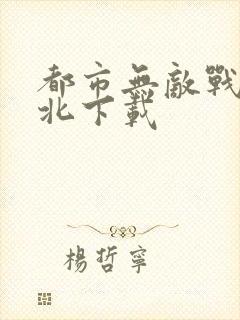 都市無敵戰
北下載
楊哲寧